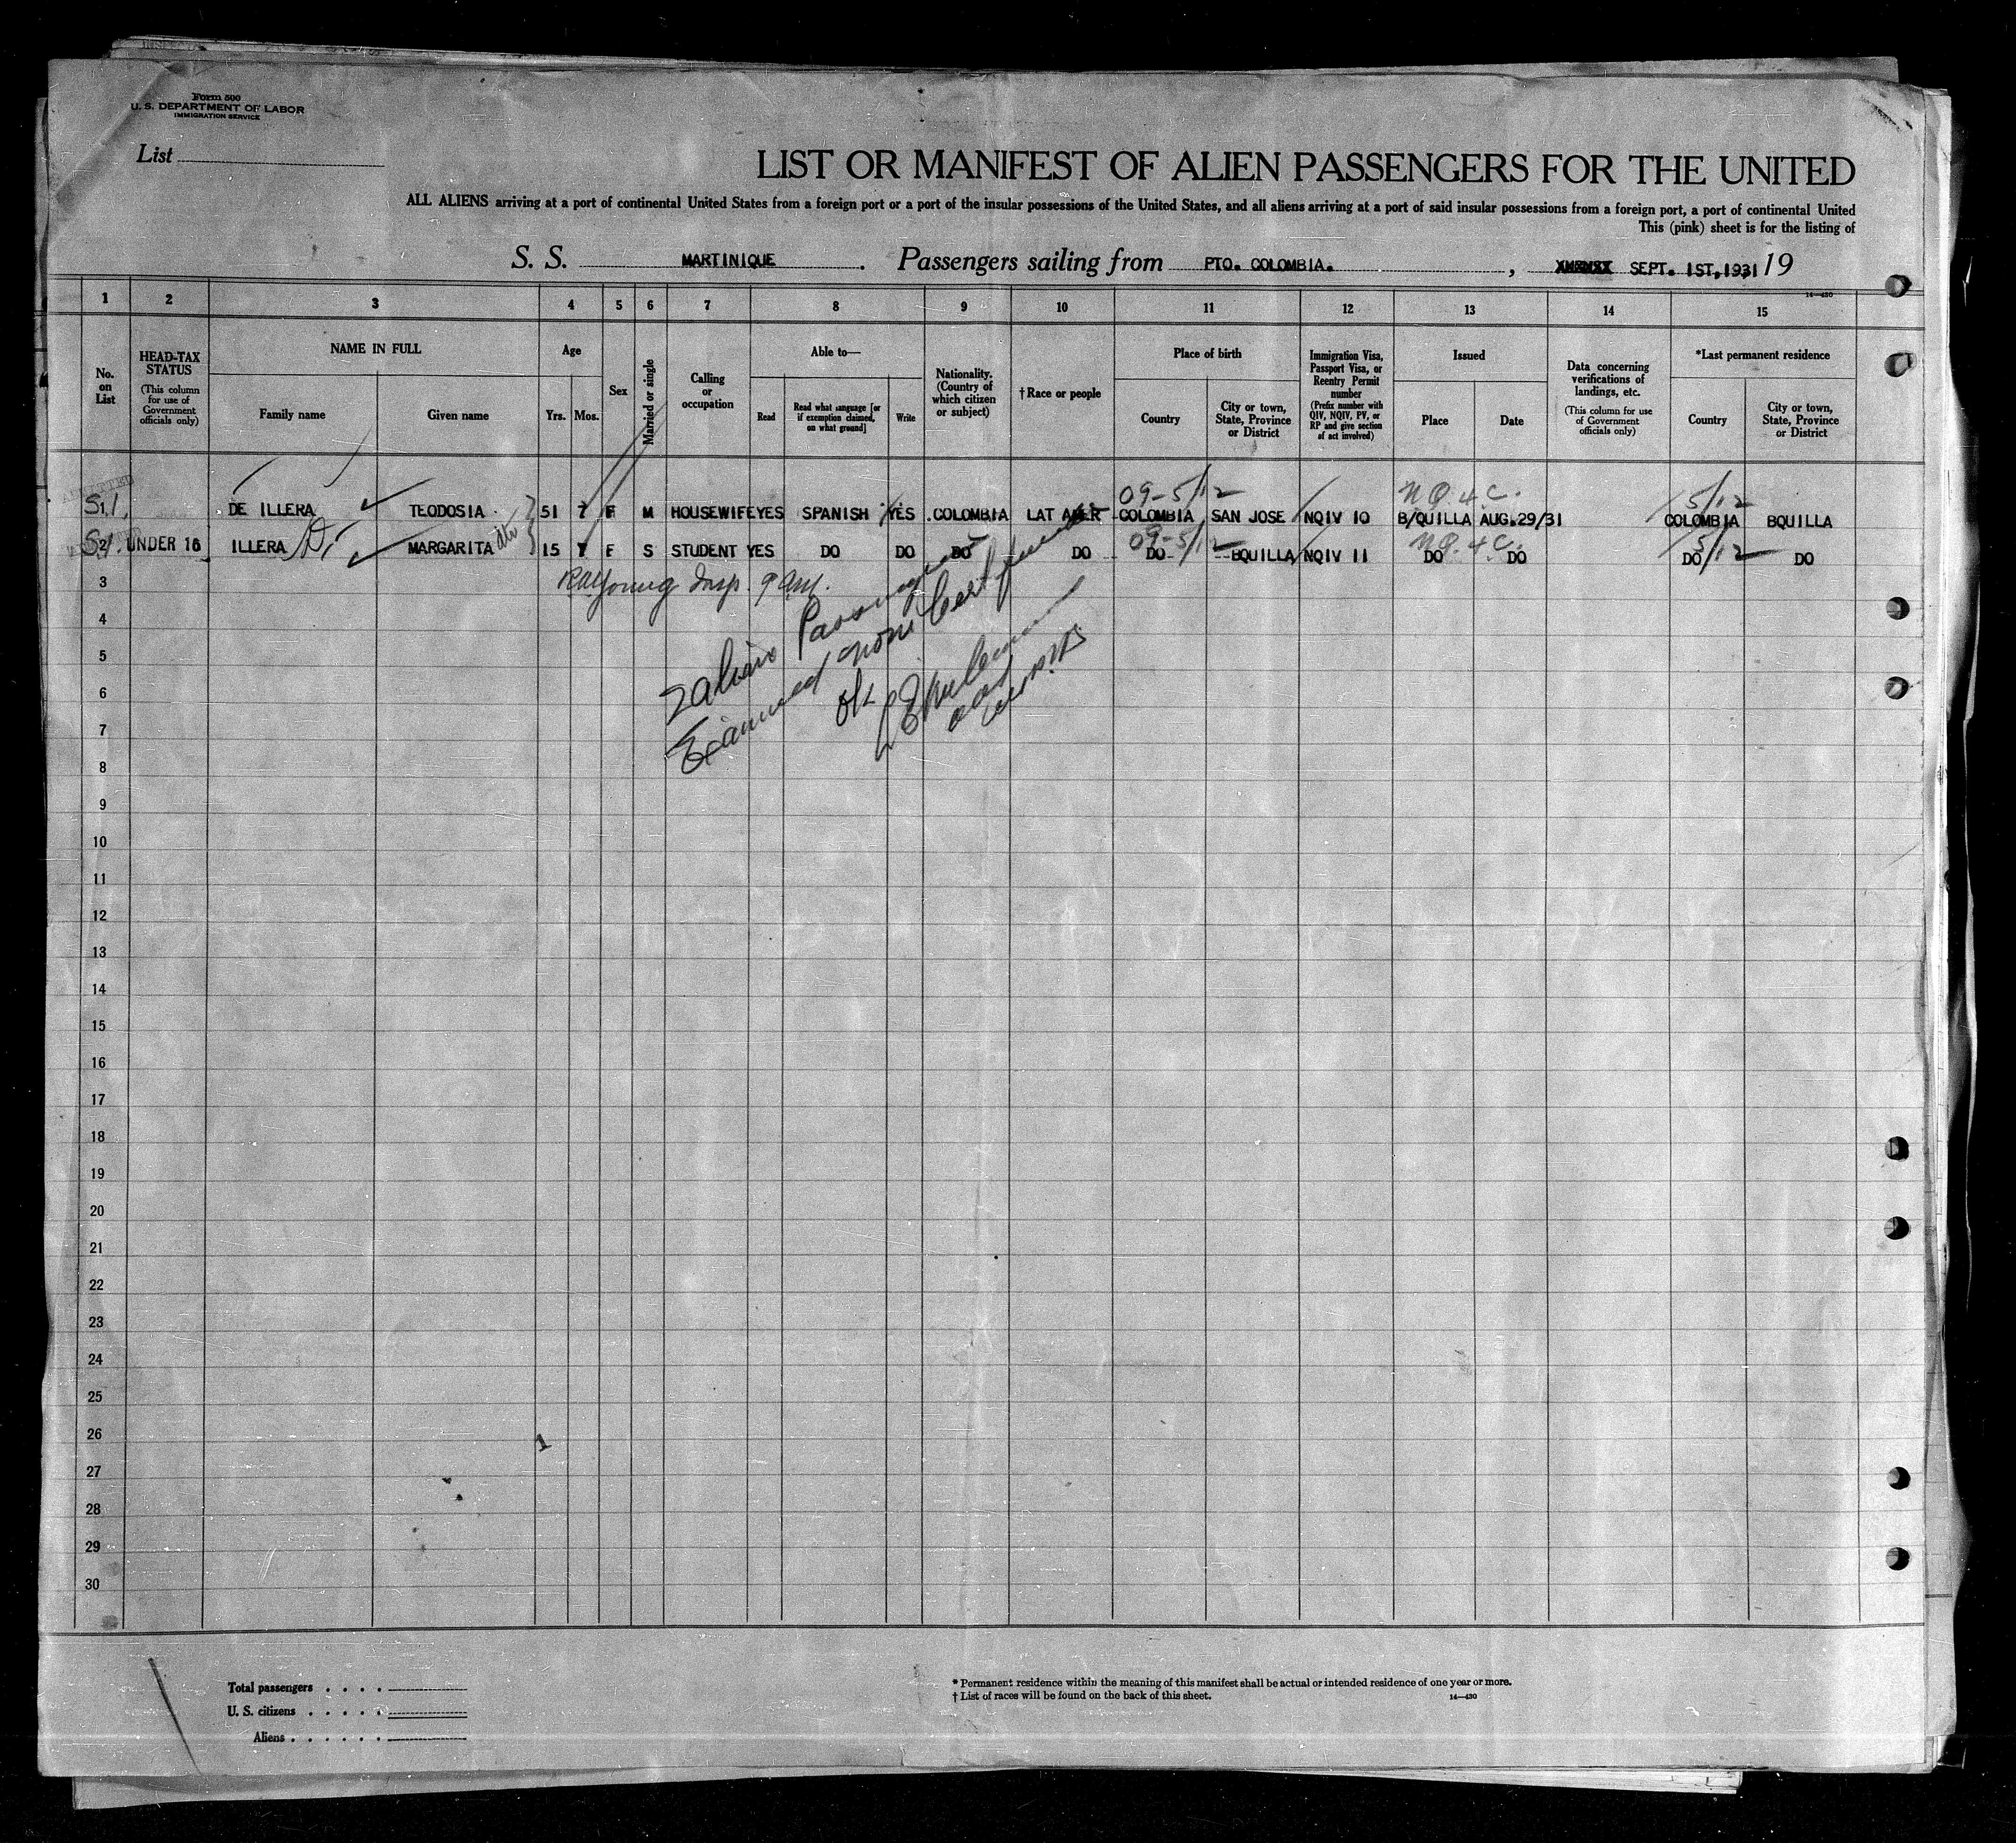 Form 500
U. S. DEPARTMENT OF LABOR
IMMIGRATION SERVICE
List
LIST OR MANIFEST OF ALIEN PASSENGERS FOR THE UNITED
ALL ALIENS arriving at a port of continental United States from a foreign port or a port of the insular possessions of the United States, and all aliens arriving at a port of said insular possessions from a foreign port, a port of continental United
This (pink) sheet is for the listing of
S. S. MARTINIQUE. Passengers sailing from PTO. COLOMBIA. , SEPT. 1ST, 1931 19
14—430
1 2 3 4 5 6 7 8 9 10 11 12 13 14 15
No. on List
HEAD-TAX STATUS (This column for use of Government officials only)
NAME IN FULL
Family name Given name
Age
Yrs. Mos.
Sex
Married or single
Calling or occupation
Able to—
Read Read what language [or if exemption claimed, on what ground] Write
Nationality. (Country of which citizen or subject)
†Race or people
Place of birth
Country City or town, State, Province or District
Immigration Visa, Passport Visa, or Reentry Permit number (Prefix number with QIV, NQIV, PV, or RP and give section of act involved)
Issued
Place Date
Data concerning verifications of landings, etc. (This column for use of Government officials only)
*Last permanent residence
Country City or town, State, Province or District
ADMITTED
09-5/12 N.Q. 4 C. 5/12
1 DE ILLERA TEODOSIA 51 7 F M HOUSEWIFE YES SPANISH YES COLOMBIA LAT AMER COLOMBIA SAN JOSE NQIV 10 B/QUILLA AUG.29/31 COLOMBIA BQUILLA
09-5/12 N.Q. 4 C. 5/12
2 UNDER 16 ILLERA MARGARITA 15 7 F S STUDENT YES DO DO DO DO DO BQUILLA NQIV 11 DO DO DO DO
3
Young Insp. 9 AM.
4
5
2 alien Passengers
6
Examined none
7
8
9
10
11
12
13
14
15
16
17
18
19
20
21
22
23
24
25
26
1
27
28
29
30
Total passengers . . . .
U. S. citizens . . . . .
Aliens . . . . . .
* Permanent residence within the meaning of this manifest shall be actual or intended residence of one year or more.
† List of races will be found on the back of this sheet.
14—430